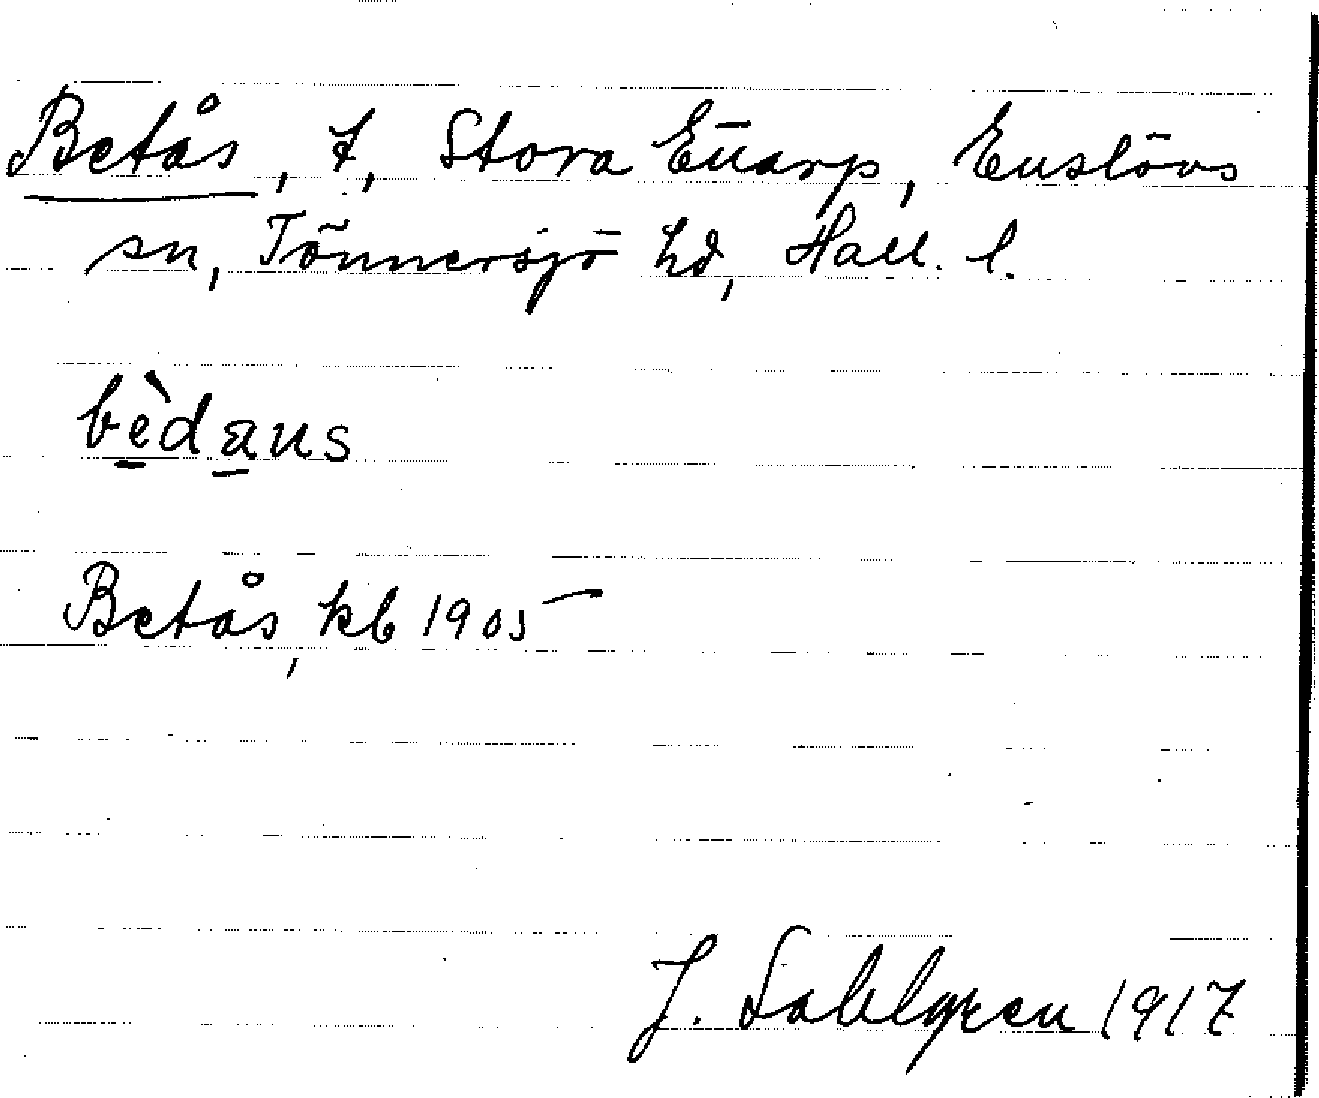 Betås, t, Stora Ēuarp, Euslövs
sn, Tönnersjö hd, Hall. l.
bèdaus
Betås, kb 1905
J. Sahlgren 1917